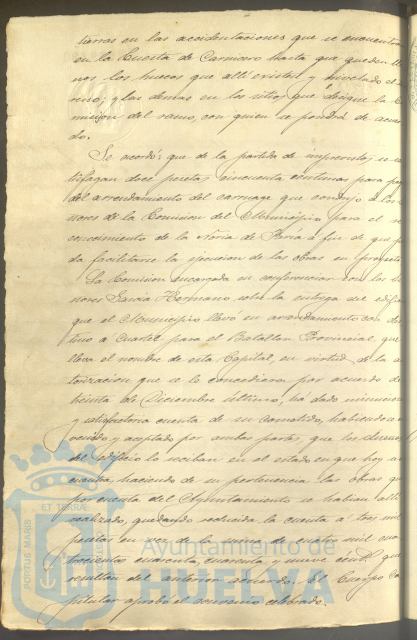 tierras en las accidentaciones que se encuentra
en la Cuesta de Carnicero hasta que queden lle
nos los huecos que allí existen y nivelado el
piso; y las demas en los sitios que designe la Co
mision del ramo, con quien se pondrá de acuer
do.
Se acordó: que de la partida de imprevistos se sa
tisfagan doce pesetas cincuenta centimos para pago
del arrendamiento del carruage que condujo á los se
ñores de la Comision del Municipio para el re
conocimiento de la Noria de á fin de que pue
da facilitarse la ejecucion de las obras en proyecto
La Comision encargada en conferenciar con los Se
ñores Garcia Hermano sobre la entrega del edificio
que el Municipio llevó en arrendamiento con des
tino a Cuartel para el Batallon Provincial, que
lleva el nombre de esta Capital, en virtud de la au
torizacion que se le concediera por acuerdo de
treinta de Diciembre último, ha dado minuciosa
y satisfactoria cuenta de su cometido, habiendo
y aceptado por ambas partes, que los dueños
del edificio lo reciban en el estado en que hoy se en
cuentra, haciendo de su pertenencia las obras que
por cuenta del Ayuntamiento se habian alli
realizado, quedando reducida la cuenta á tres mil
pesetas en vez de la suma de cuatro mil cua
trocientas cuarenta, cuarenta y nueve cénts. que
resultan del anterior acuerdo. El Cuerpo Ca
pitular aprobó el convenio celebrado.
PORTUS MARIS
ET TERRÆ
Ayuntamiento de
HUELVA